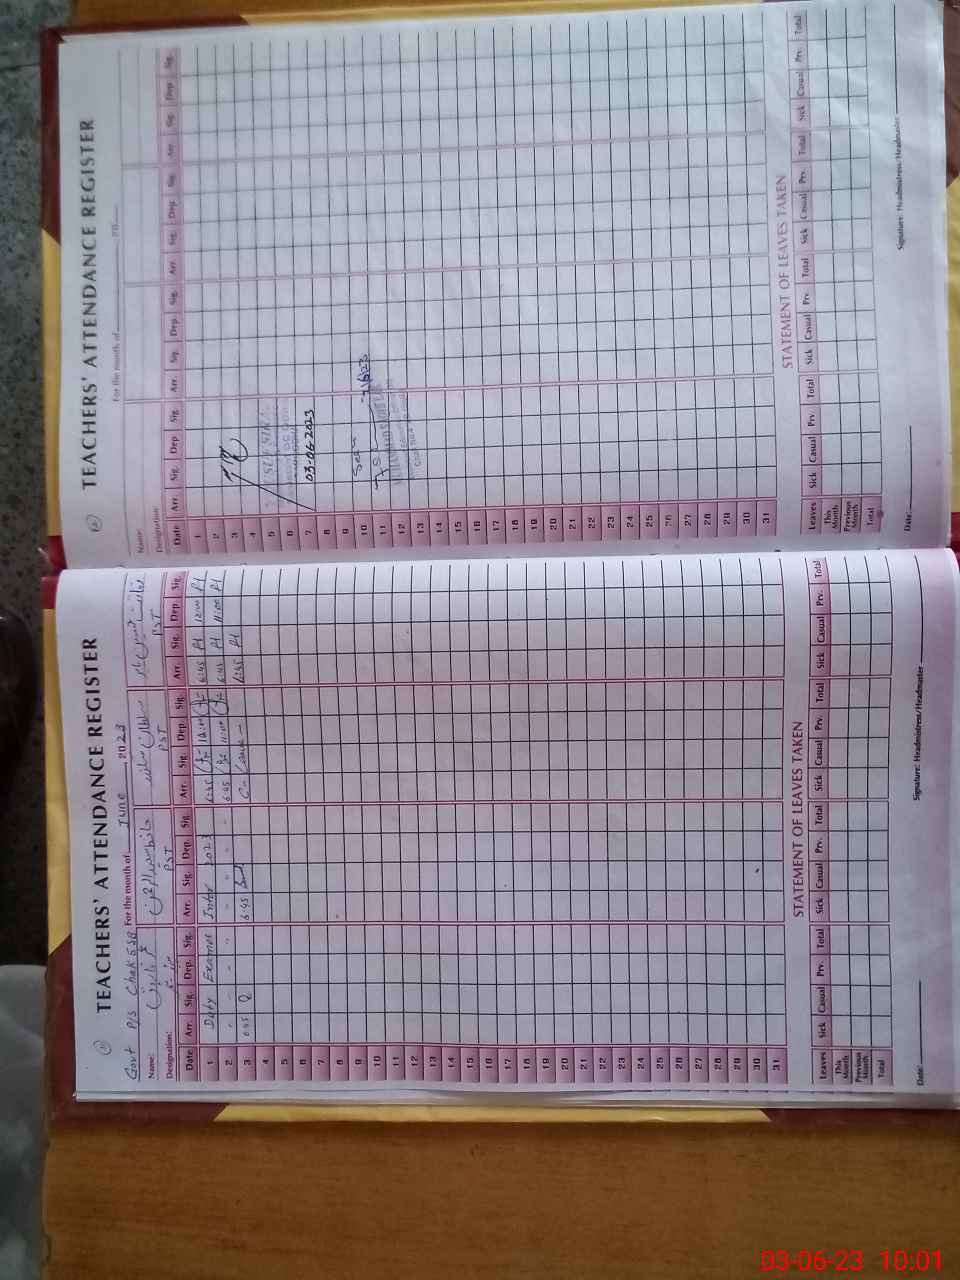 TEACHERS' ATTENDANCE REGISTER
Govt P/S Chak 55B For the month of June 2023
Name:
Designation: PST PST PST
Date Arr. Sig. Dep. Sig. Arr. Sig. Dep. Sig. Arr. Sig. Dep. Sig. Arr. Sig. Dep. Sig.
1 Duty Exames Inter 2023 6:45 12:00 6:45 12:00
2 " " " " " " 6:45 11:00 6:45 11:00
3 6:45 6:45 6:45
4
5
6
7
8
9
10
11
12
13
14
15
16
17
18
19
20
21
22
23
24
25
26
27
28
29
30
31
STATEMENT OF LEAVES TAKEN
Leaves Sick Casual Prv. Total Sick Casual Prv. Total Sick Casual Prv. Total Sick Casual Prv. Total
This Month
Previous Month
Total
Date: Signature: Headmistress/Headmaster
TEACHERS' ATTENDANCE REGISTER
For the month of 20
Name
Designation
Date Arr. Sig. Dep. Sig. Arr. Sig. Dep. Sig. Arr. Sig. Dep. Sig. Arr. Sig. Dep. Sig.
1
2
3
4
5
6
7 03-06-2023
8
9
10 Seen
11
12
13
14
15
16
17
18
19
20
21
22
23
24
25
26
27
28
29
30
31
STATEMENT OF LEAVES TAKEN
Leaves Sick Casual Prv. Total Sick Casual Prv. Total Sick Casual Prv. Total Sick Casual Prv. Total
This Month
Previous Month
Total
Date: Signature: Headmistress/Headmaster
03-06-23 10:01